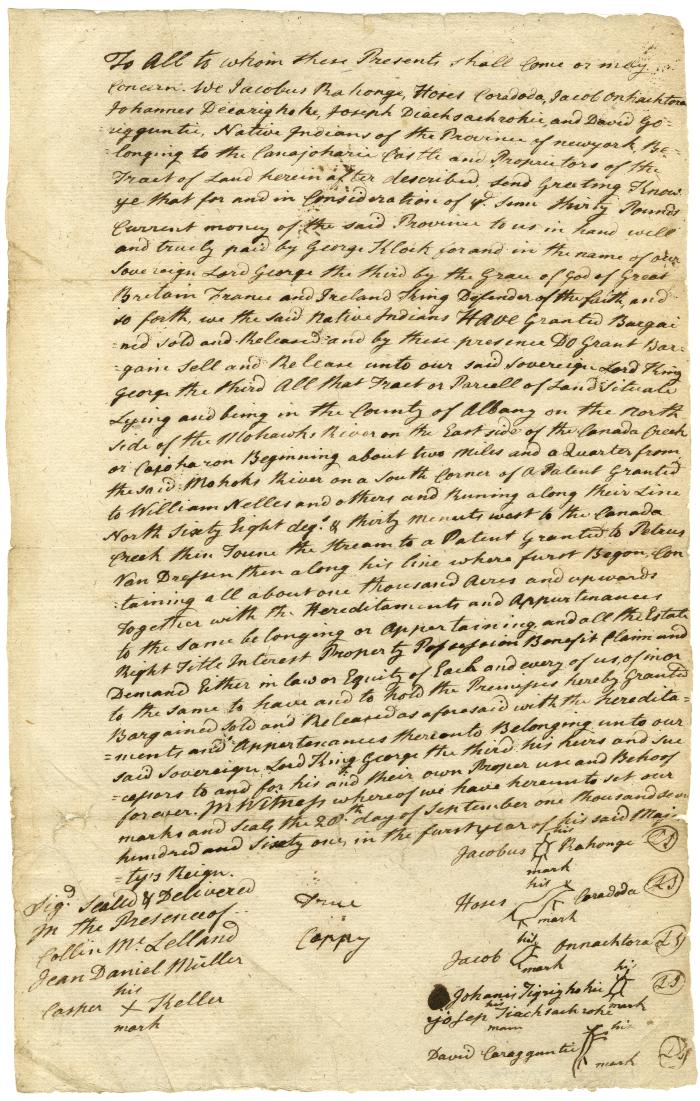 To All to whom these Presents shall Come or may
Concern. We Jacobus Rahonge, Hoses Coradoda, Jacob Onhachtora
Johannes Decarighoke, Joseph Diachsachrohie, and David Go-
rigguntie, Native Indians of the Province of newyork Be-
longing to the Canajoharie Castle and Proprietors of the
Tract of Land herein after described Send Greeting Know
ye that for and in Consideration of ye. Some thirty Pounds
Current money of the said Province to us in hand well
and truely paid by George Klock for and in the name of our
Sovereign Lord George the third by the Grace of God of Great
Britain France and Ireland King Defender of the faith, and
so forth, we the said Native Indians HAVE Granted Bargai
=ned Sold and Released and by these presence DO Grant Bar-
gain Sell and Release unto our said Sovereign Lord King
George the third All that Tract or Parcell of Land Situate
Lying and being in the County of Albany on the North
Side of the Mohawks River on the East side of the Canada Creek
or Cajoharon Beginning about two Miles and a Quarter from
the said Mohoks River on a South Corner of a Patent Granted
to William Nelles and others and Runing along their Line
North Sixty Eight degs. & thirty Menuts west to the Canada
Creek then Toune the Stream to a Patent Granted to Peterus
Van Dressen then along his line where furst Begon, Con
=taining all about one thousand Acres and upwards
Together with the Hereditaments and Appurtenances
to the same belonging or Appertaining, and all the Estate
Right Title Interest Property Possession Benefit Claim and
Demand Either in law or Equity of Each and every of us, of in or
to the same to have and to hold the Premisses hereby Granted
Bargained Sold and Released as aforesaid with the heredita-
=ments and Appertenances thereunto Belonging unto our
said Sovereign Lord King George the third his heirs and suc
=cessors to and for his and their own Proper use and Behoof
forever. In Witness whereof we have hereunto set our
marks and Seals the 28th. day of September one thousand seven
hundred and Sixty one, in the furst year of his said Maj-
ty's Reign.
Jacobus his mark Rahonge LS
Sigd. Sealed & Delivered
True
In the Presence of
Hoses his mark Coradoda LS
Collin Mc. Lelland
Coppy
Jacob his mark Onnachtora LS
Jean Daniel Müller
his
Johanis Tigrighokie his mark LS
Casper X Keller
Josep his Tiachsachrohie
mark
David Caragguntie his mark LS